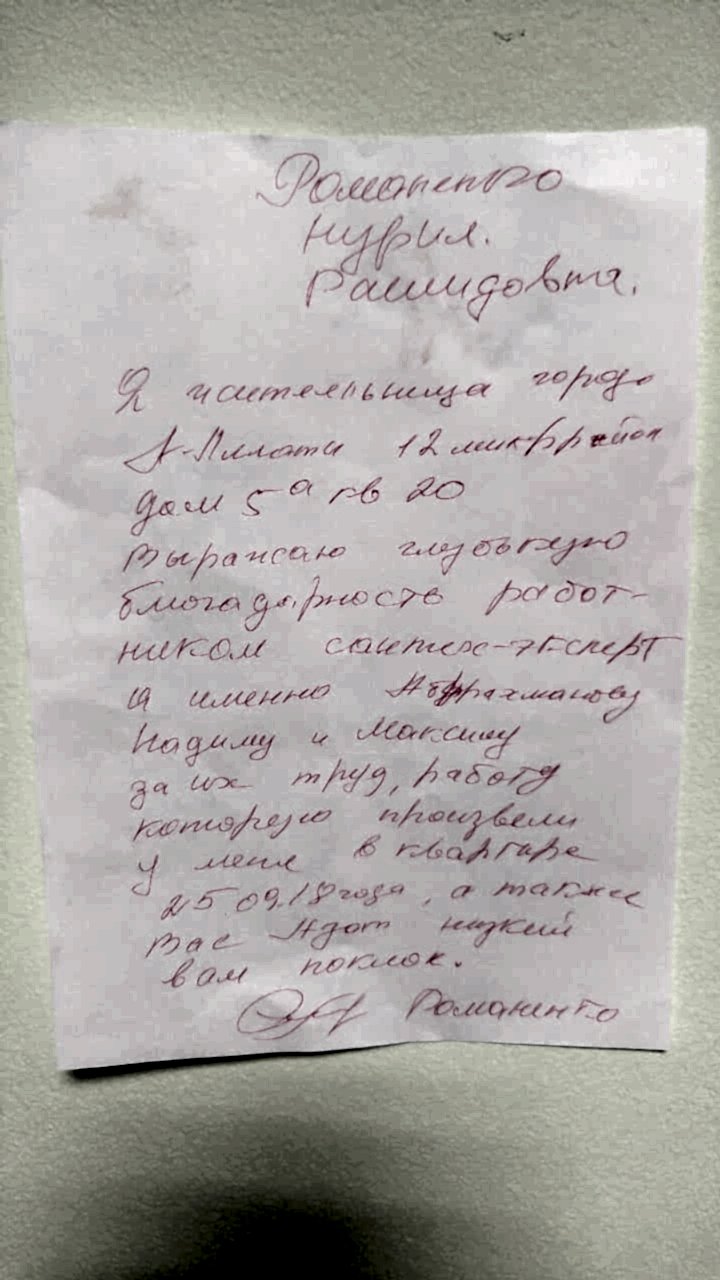 Романенко
Нурия.
Рашидовна.
Я жительница города
А-Ллматы 12 микррайон
дом 5а кв 20
выражаю глубокую
благадарность работ-
ником сантех-эксперт
а именно Абрахманову
Надиму и Максиму
за их труд, работу
которую произвели
у меня в квартире
25.09.18 года, а также
Вас Адат низкий
вам поклок.
Романенко